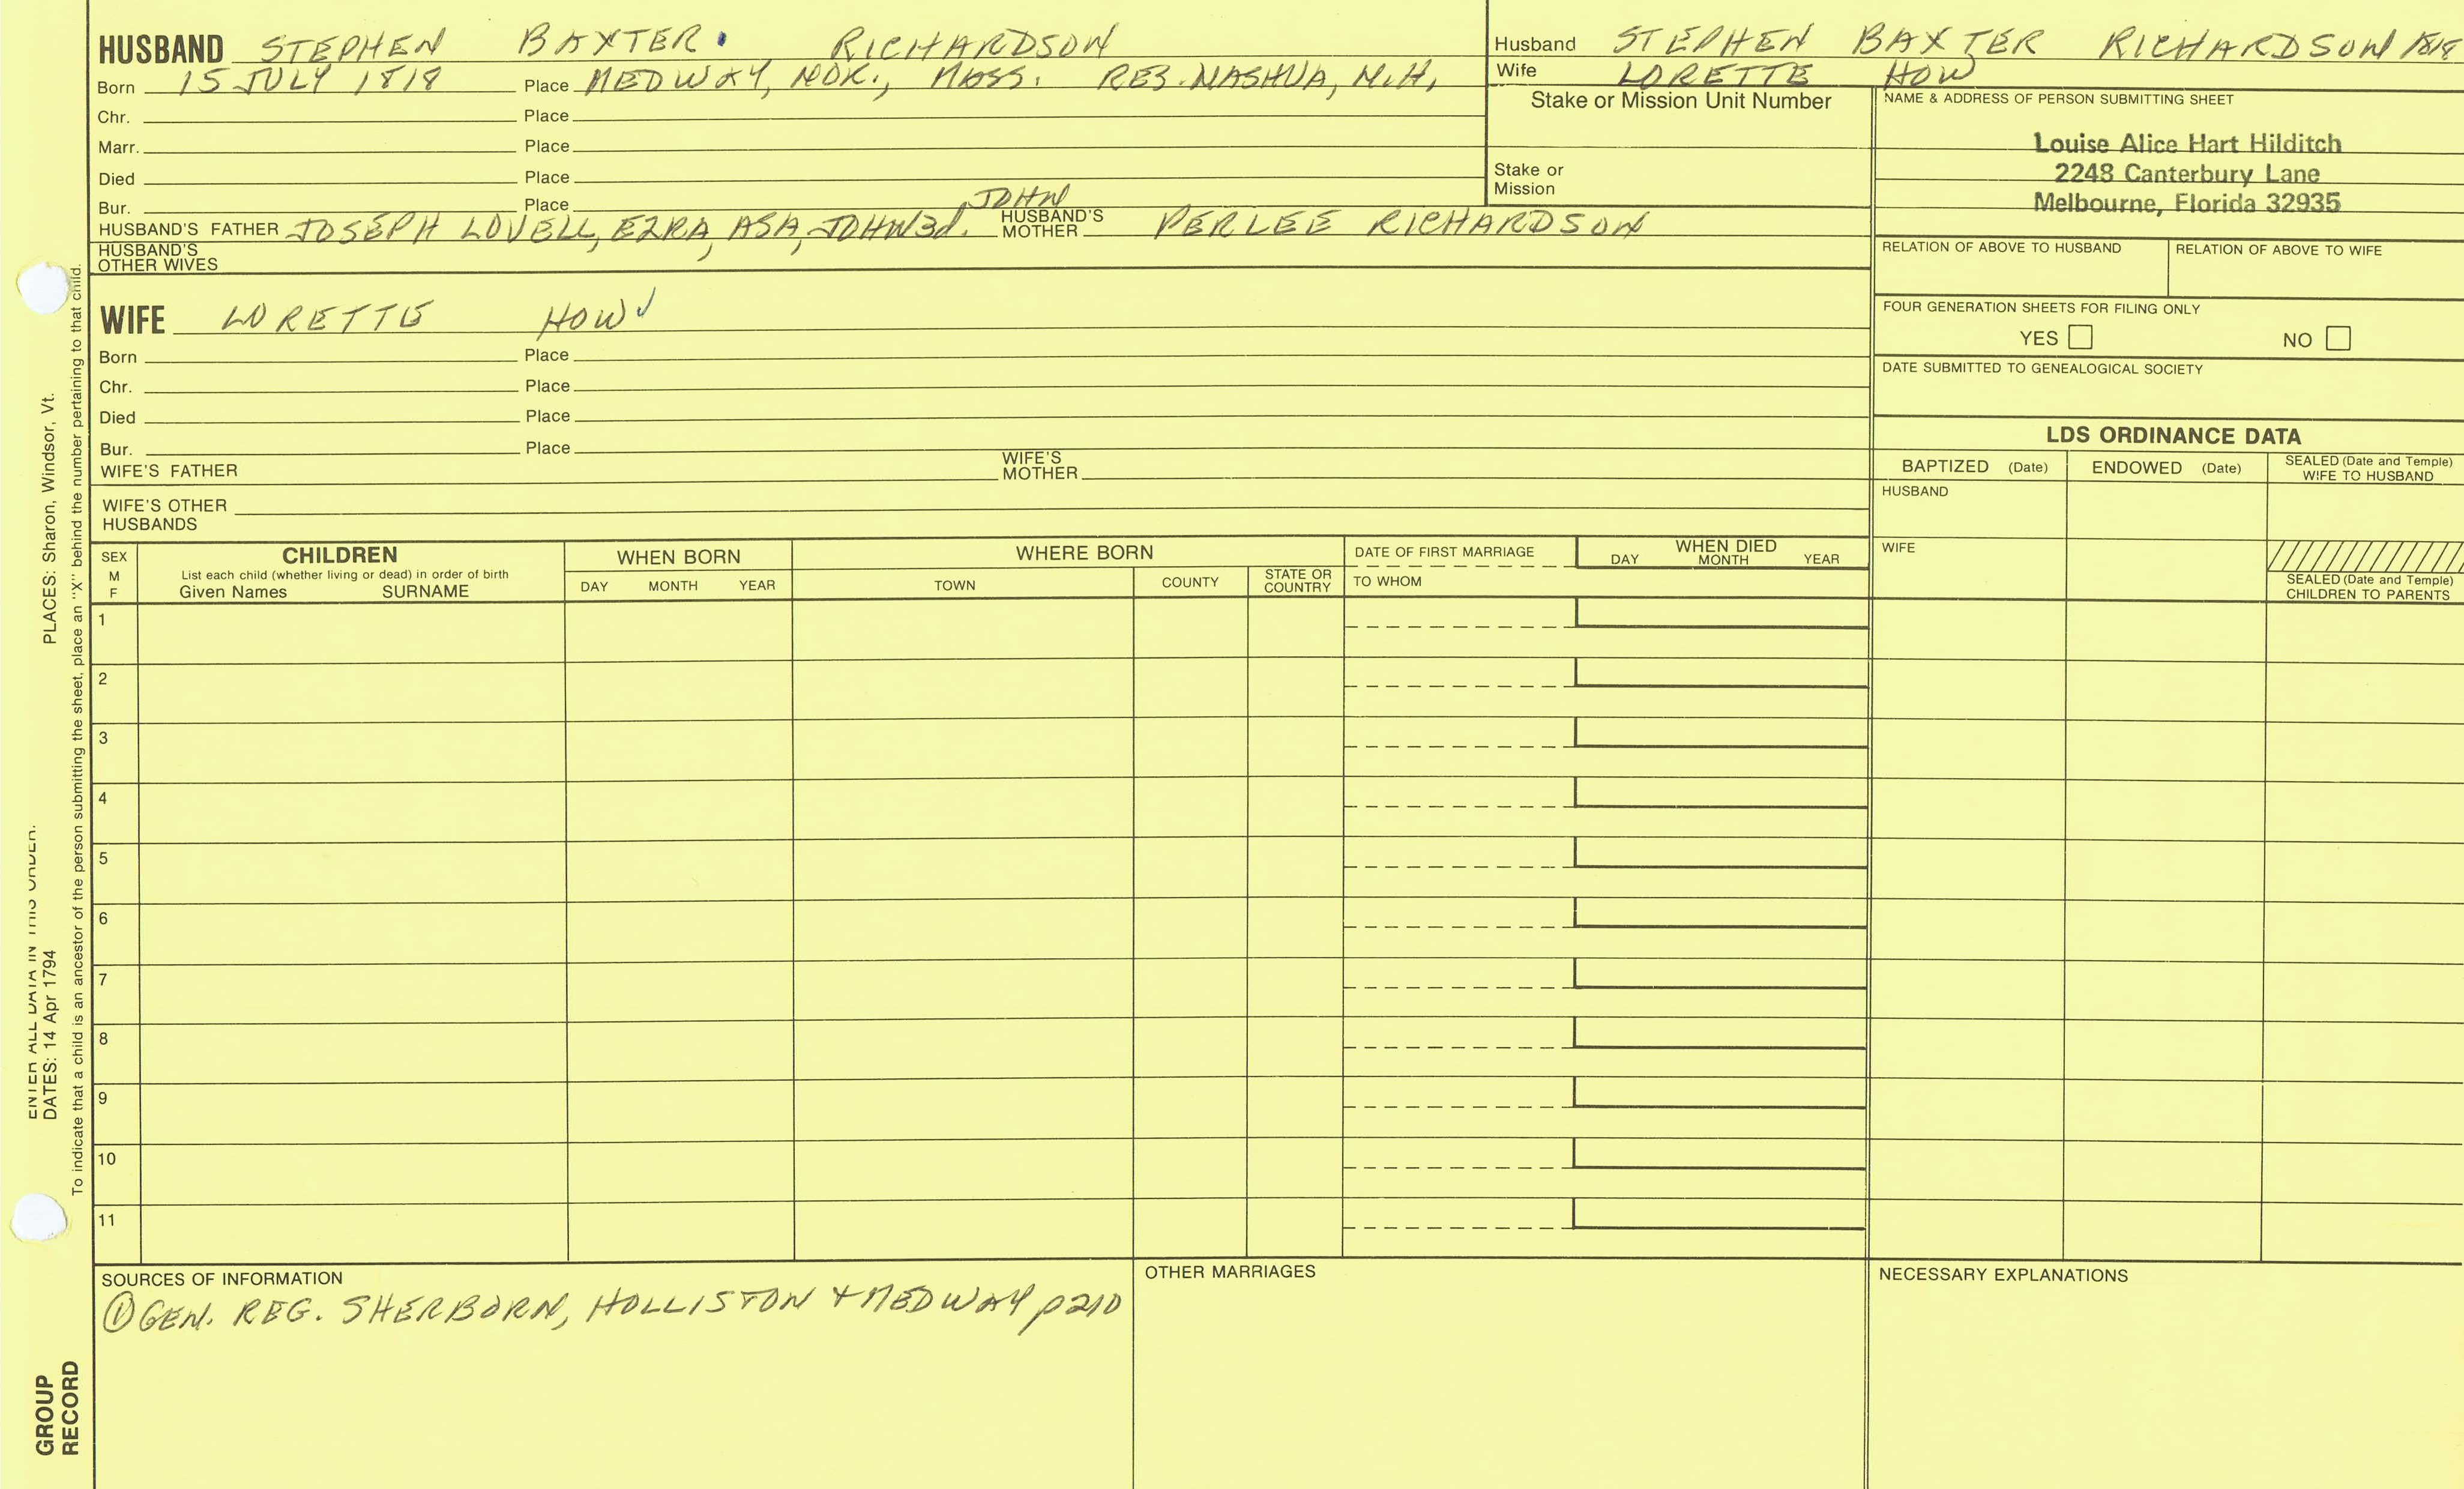 HUSBAND STEPHEN BAXTER. RICHARDSON
Born 15 JULY 1818 Place MEDWAY, NOR., MASS. RES. NASHUA, N.H,
Chr. Place
Marr. Place
Died Place
Bur. Place
JOHN
HUSBAND'S FATHER JOSEPH LOVELL, EZRA, ASA, JOHN 3d. HUSBAND'S MOTHER PERLEE RICHARDSON
HUSBAND'S OTHER WIVES
WIFE LORETTE HOW ✓
Born Place
Chr. Place
Died Place
Bur. Place
WIFE'S FATHER WIFE'S MOTHER
WIFE'S OTHER HUSBANDS
Husband STEPHEN BAXTER RICHARDSON 1818
Wife LORETTE HOW
Stake or Mission Unit Number
Stake or
Mission
NAME & ADDRESS OF PERSON SUBMITTING SHEET
Louise Alice Hart Hilditch
2248 Canterbury Lane
Melbourne, Florida 32935
RELATION OF ABOVE TO HUSBAND RELATION OF ABOVE TO WIFE
FOUR GENERATION SHEETS FOR FILING ONLY
YES NO
DATE SUBMITTED TO GENEALOGICAL SOCIETY
LDS ORDINANCE DATA
BAPTIZED (Date) ENDOWED (Date) SEALED (Date and Temple) WIFE TO HUSBAND
HUSBAND
WIFE
SEALED (Date and Temple)
CHILDREN TO PARENTS
SEX M F
CHILDREN
List each child (whether living or dead) in order of birth
Given Names SURNAME
WHEN BORN
DAY MONTH YEAR
WHERE BORN
TOWN COUNTY STATE OR COUNTRY
DATE OF FIRST MARRIAGE
TO WHOM
WHEN DIED
DAY MONTH YEAR
1
2
3
4
5
6
7
8
9
10
11
SOURCES OF INFORMATION
① GEN. REG. SHERBORN, HOLLISTON + MEDWAY p210
OTHER MARRIAGES
NECESSARY EXPLANATIONS
ENTER ALL DATA IN THIS ORDER:
DATES: 14 Apr 1794 PLACES: Sharon, Windsor, Vt.
To indicate that a child is an ancestor of the person submitting the sheet, place an "X" behind the number pertaining to that child.
GROUP
RECORD